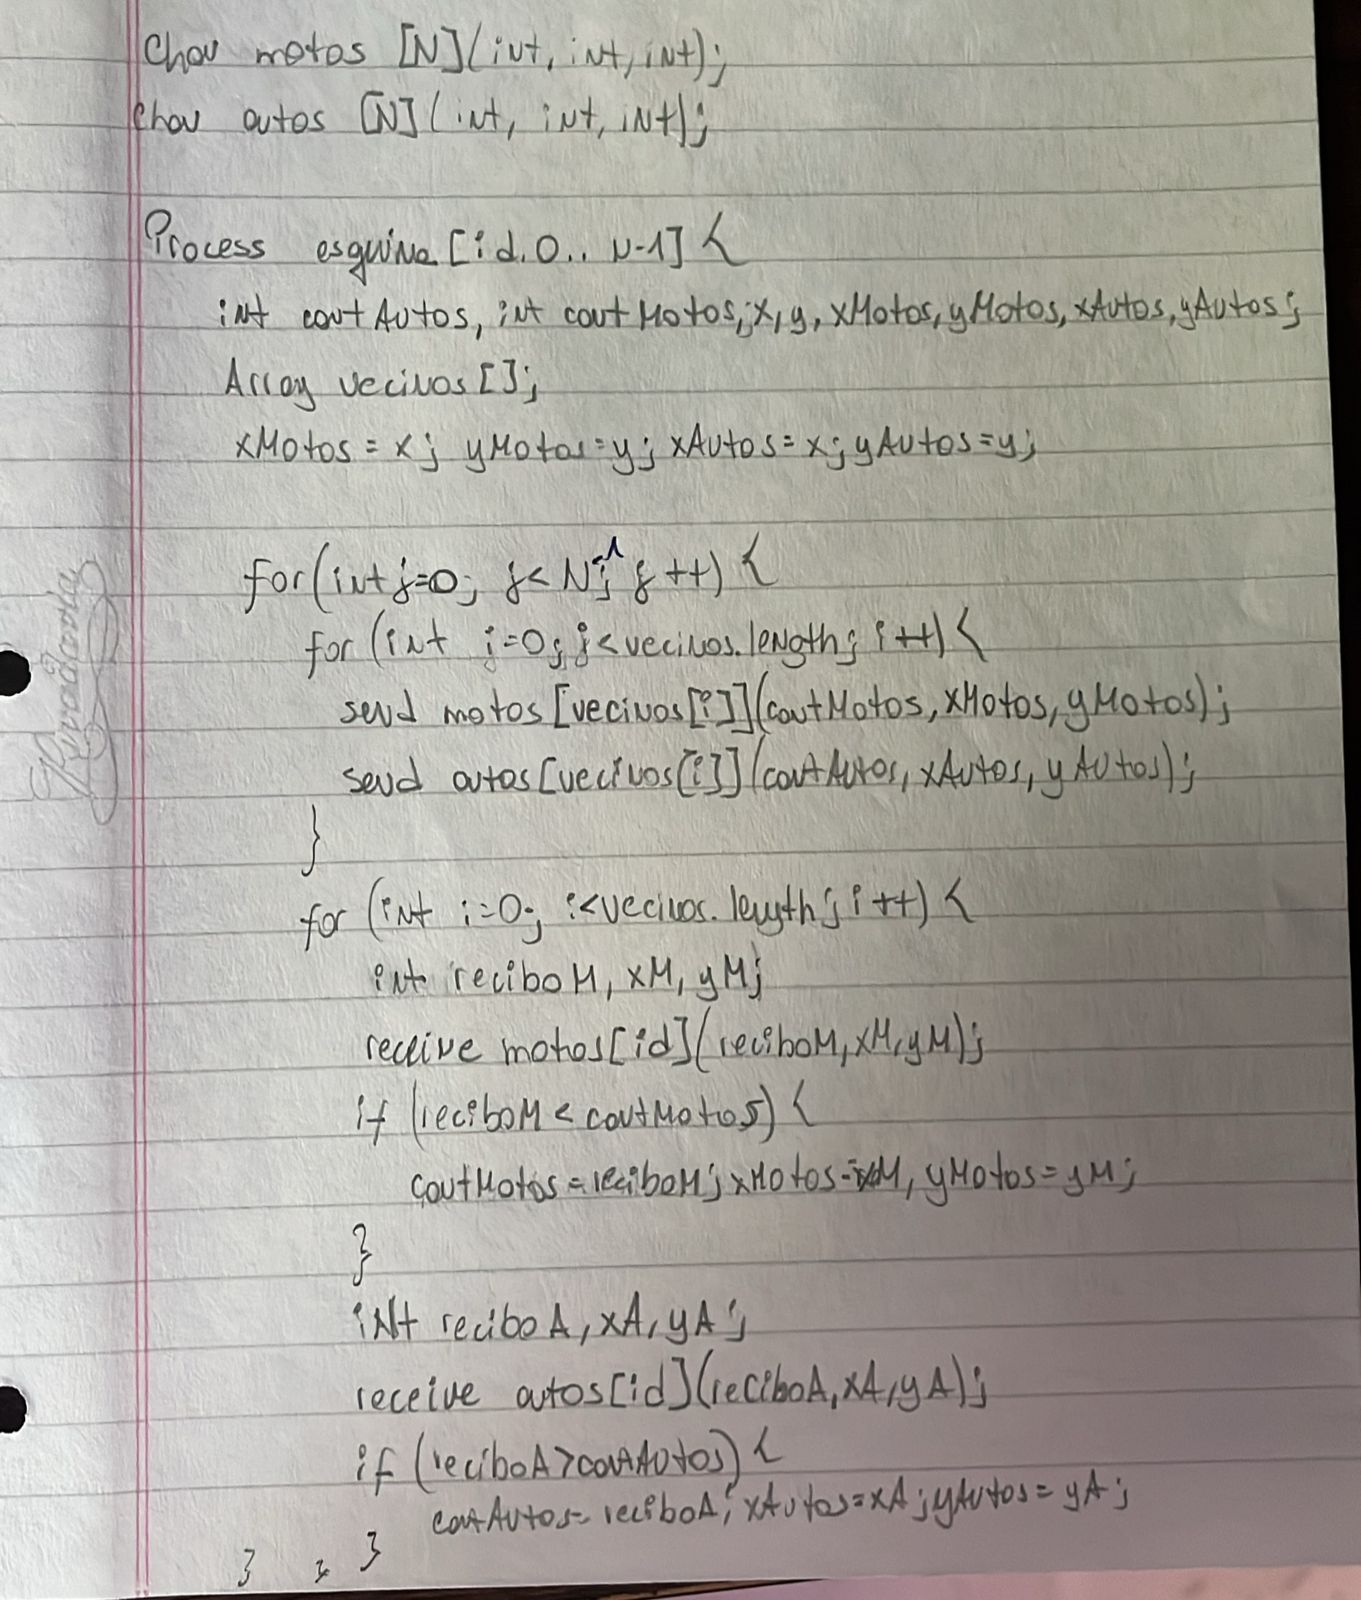 Chan motos [N](int, int, int);
chan autos [N](int, int, int);
Process esquina [id.0.. N-1] {
int cantAutos, int cantMotos, x, y, xMotos, yMotos, xAutos, yAutos;
Array vecinos[];
xMotos = x; yMotos = y; xAutos = x; yAutos = y;
for(int j=0; j< N-1; j++) {
for (int i=0; i<vecinos.length; i++) {
send motos [vecinos[i]](cantMotos, xMotos, yMotos);
send autos [vecinos[i]](cantAutos, xAutos, yAutos);
}
for (int i=0; i<vecinos.length; i++) {
int reciboM, xM, yM;
receive motos[id](reciboM, xM, yM);
if (reciboM < cantMotos) {
cantMotos = reciboM; xMotos = xM, yMotos = yM;
}
int reciboA, xA, yA;
receive autos[id](reciboA, xA, yA);
if (reciboA > cantAutos) {
cantAutos = reciboA; xAutos = xA; yAutos = yA;
} } }